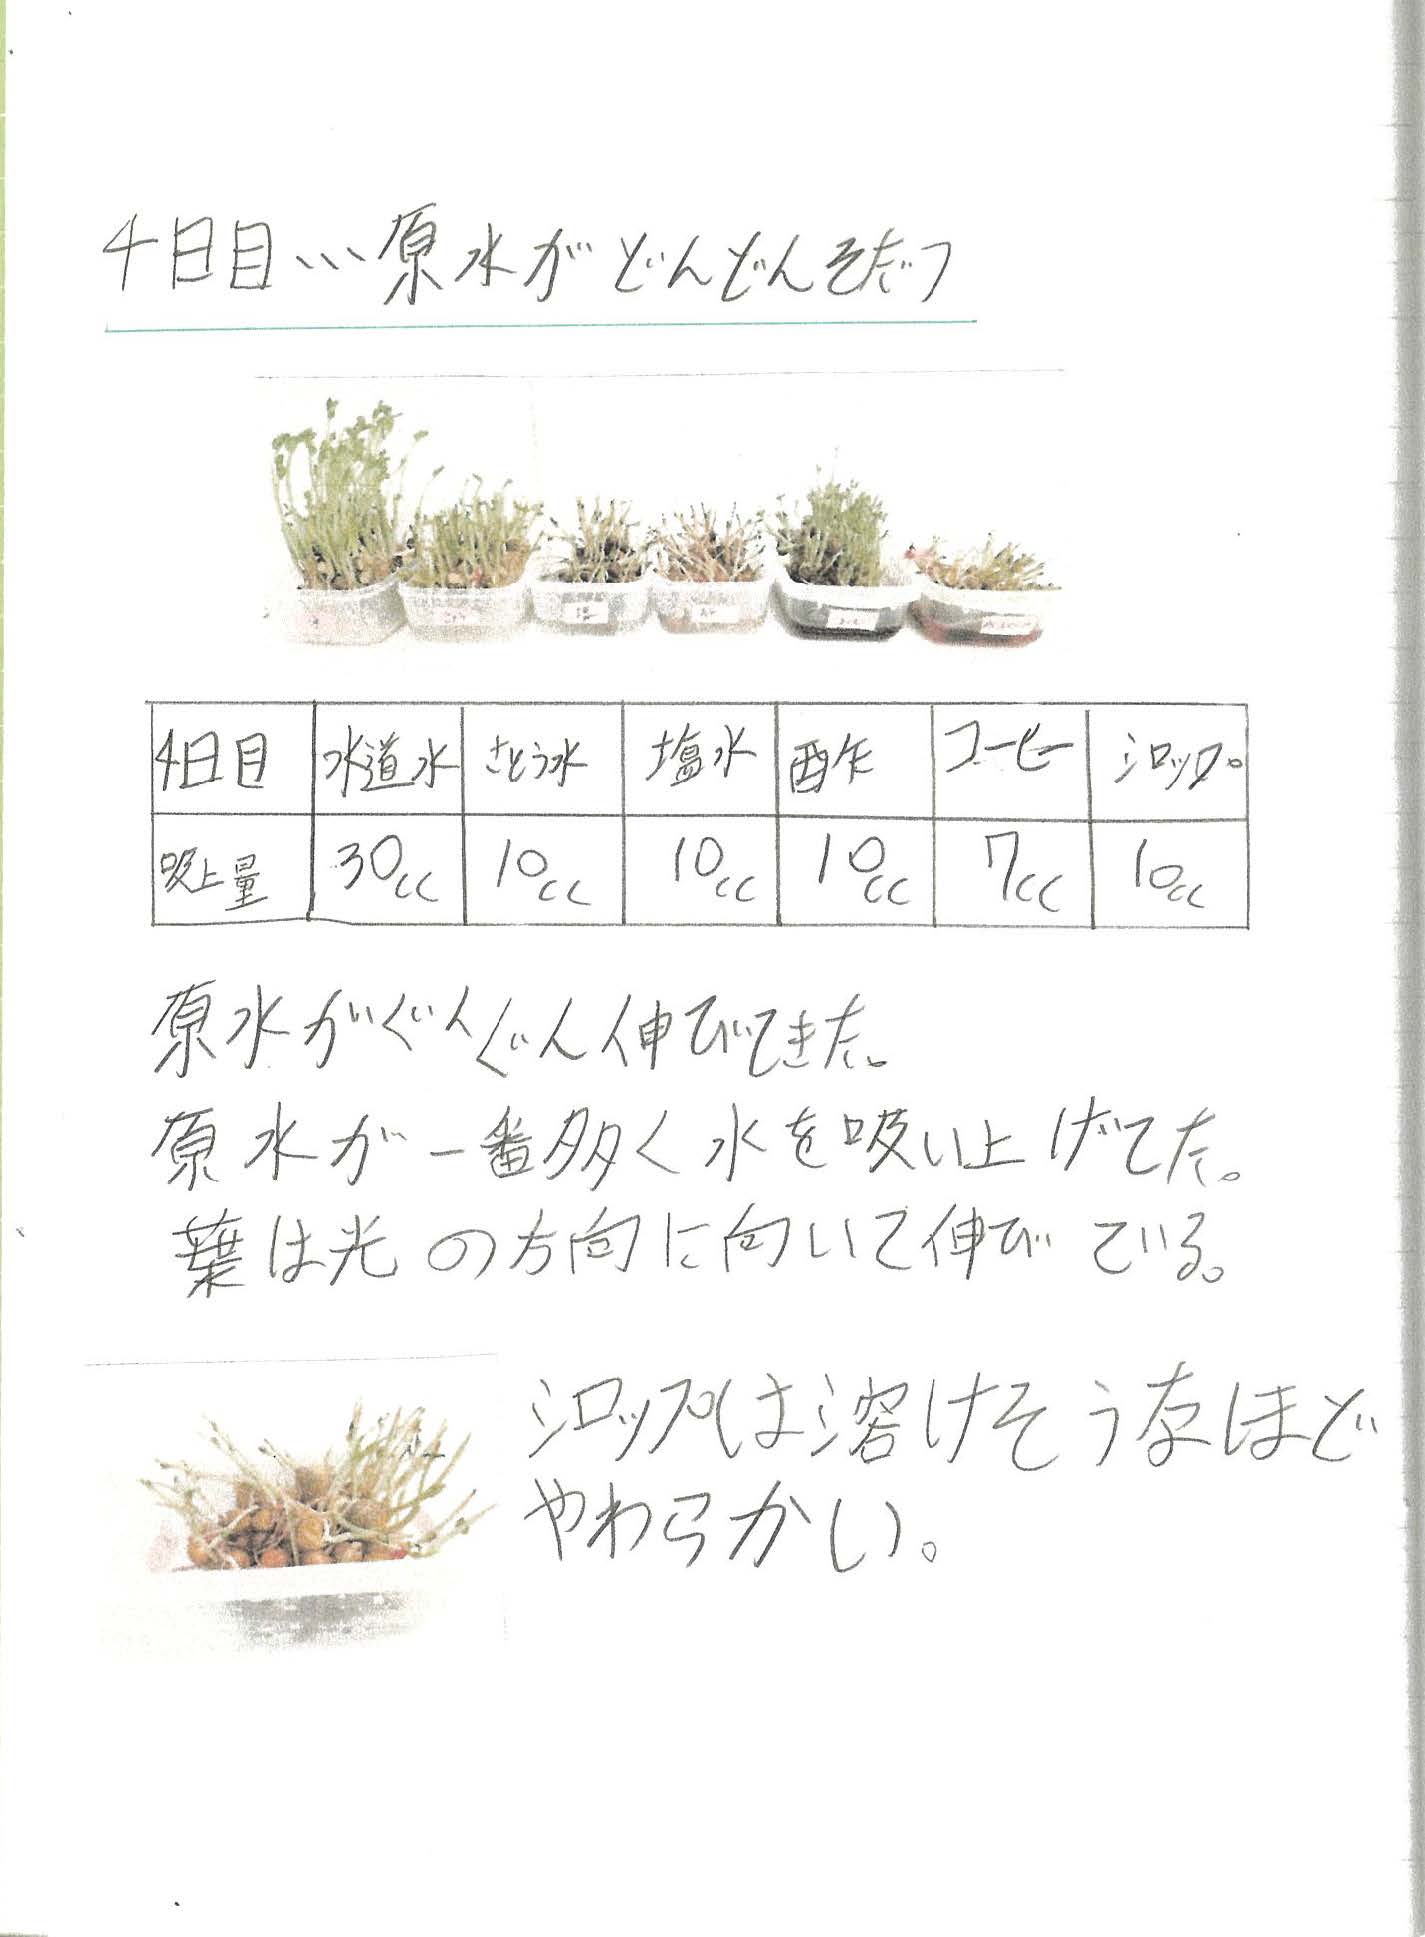 4日目…原水がどんどんそだつ
4日目 水道水 さとう水 塩水 酢 コーヒー シロップ
吸上量 30cc 10cc 10cc 10cc 7cc 10cc
原水がぐんぐん伸びてきた。
原水が一番多く水を吸い上げてた。
葉は光の方向に向いて伸びている。
シロップは溶けそうなほど
やわらかい。